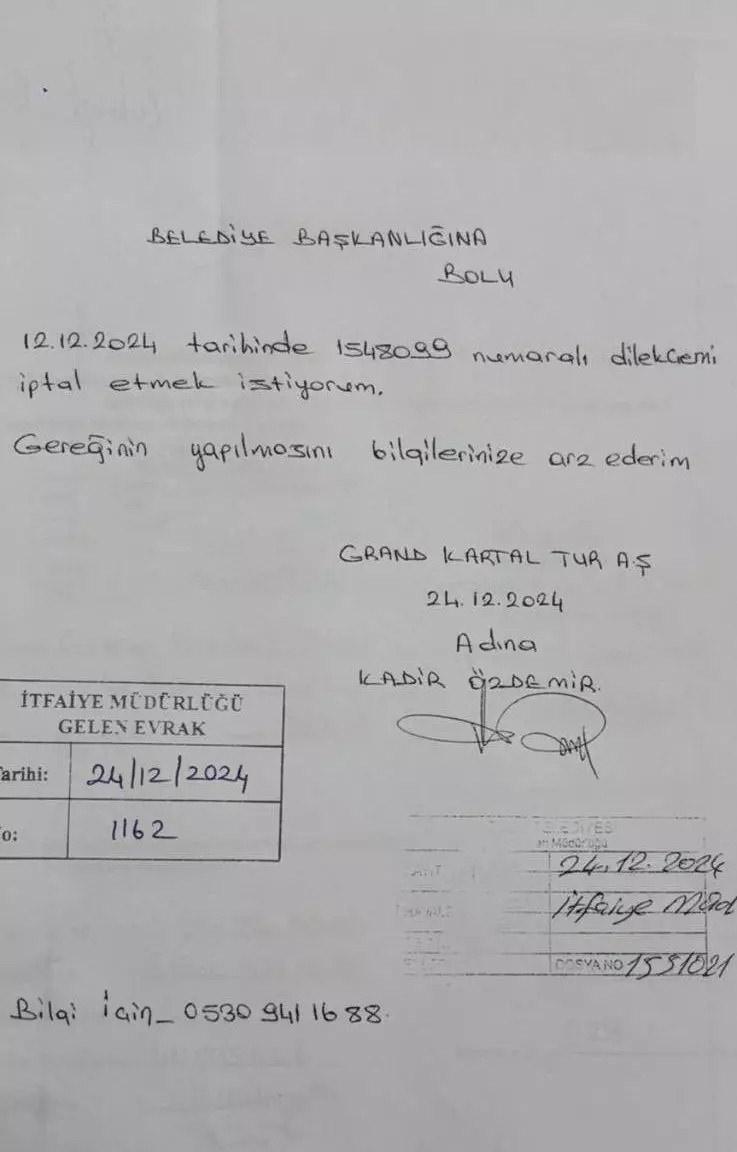 BELEDİYE BAŞKANLIĞINA
BOLU
12.12.2024 tarihinde 1548099 numaralı dilekçemi
iptal etmek istiyorum.
Gereğinin yapılmasını bilgilerinize arz ederim
GRAND KARTAL TUR AŞ
24.12.2024
Adına
KADİR ÖZDEMİR.
İTFAİYE MÜDÜRLÜĞÜ
GELEN EVRAK
arihi: 24/12/2024
o: 1162
Müdürlüğü
24.12.2024
İtfaiye Müd
DOSYA NO 1551021
Bilgi İçin_ 0530 941 16 88.